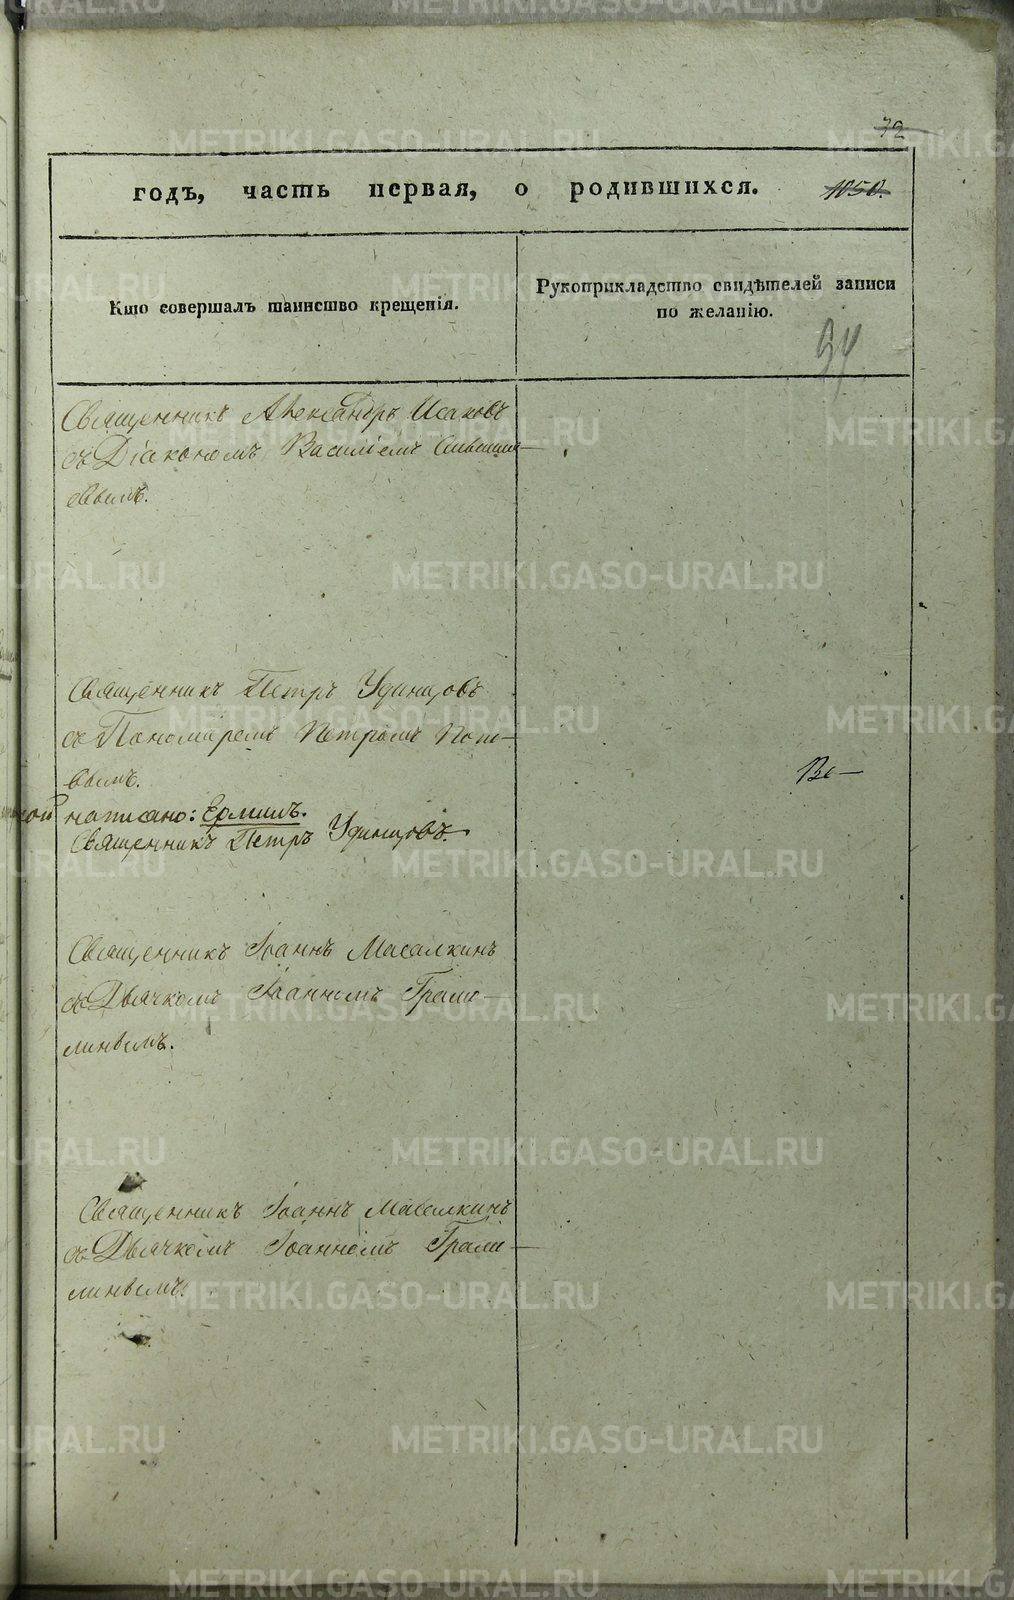 32
годъ, часть первая, о родившихся. 1050.
Кто совершалъ таинство крещенія.
Рукоприкладство свидѣтелей записи
по желанію.
Священникъ Александръ Исаковъ
съ Діакономъ Василіемъ
евымъ.
Священникъ Петръ Удинцовъ
съ Пономаремъ Петромъ Попо-
вымъ.
написано: Ермилъ.
Священникъ Петръ Удинцовъ.
Во-
Священникъ Іоаннъ Масалкинъ
съ Дьячкомъ Іоанномъ Грами-
линымъ.
Священникъ Іоаннъ Масалкинъ
съ Дьячкомъ Іоанномъ Грами-
линымъ.
METRIKI.GASO-URAL.RU